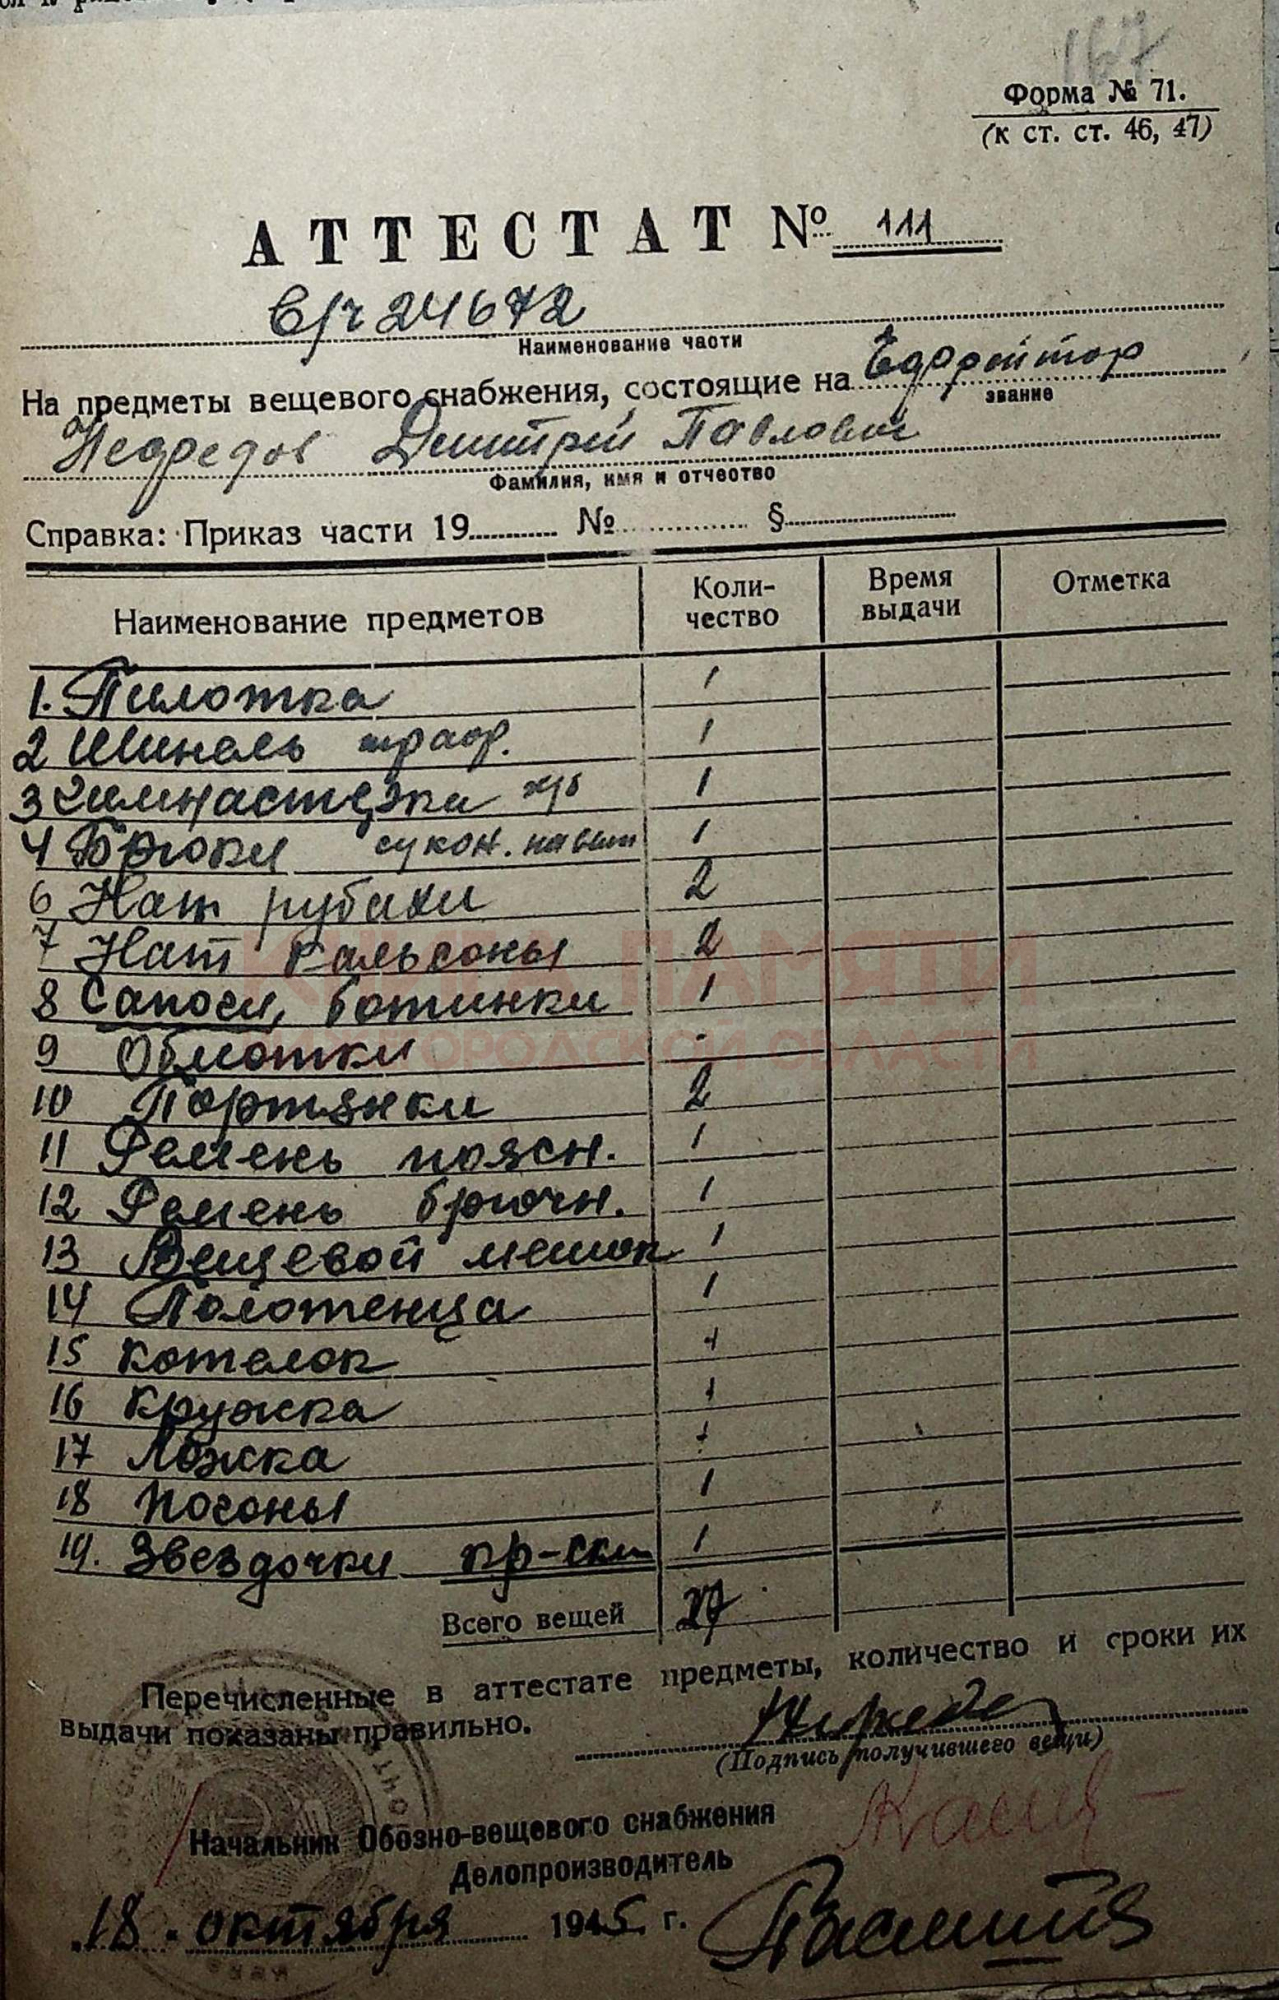 167
Форма № 71.
(к ст. ст. 46, 47)
АТТЕСТАТ № 111
в/ч 24672
Наименование части
На предметы вещевого снабжения, состоящие на Ефрейтор
звание
Дмитрий Павлович
Фамилия, имя и отчество
Справка: Приказ части 19 № §
Наименование предметов Коли-чество Время выдачи Отметка
1. Пилотка 1
2 Шинель 1
3 Гимнастерка х/б 1
4 Брюки сукон. 1
6 Нат рубахи 2
7 Нат кальсоны 2
КНИГА ПАМЯТИ
8 Сапоги, ботинки 1
9 Обмотки -
НИЖЕГОРОДСКОЙ ОБЛАСТИ
10 Портянки 2
11 Ремень поясн. 1
12 Ремень брючн. 1
13 Вещевой мешок 1
14 Полотенца 1
15 Котелок 1
16 Кружка 1
17 Ложка 1
18 Погоны 1
19. Звездочки 1
Всего вещей
Перечисленные в аттестате предметы, количество и сроки их
выдачи показаны правильно.
(Подпись получившего вещи)
Начальник Обозно-вещевого снабжения
Делопроизводитель
18 октября 1945 г.